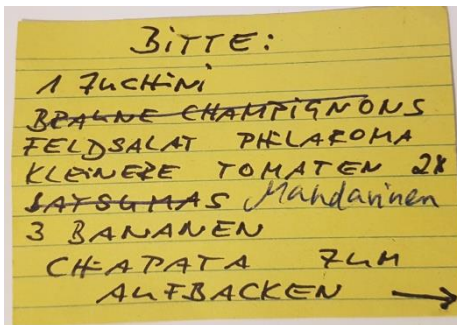 BITTE:
1 ZUCHINI
BRAUNE CHAMPIGNONS
FELDSALAT PHLAROMA
KLEINERE TOMATEN 2x
SATSUMAS Mandarinen
3 BANANEN
CHAPATA ZUM
AUFBACKEN →